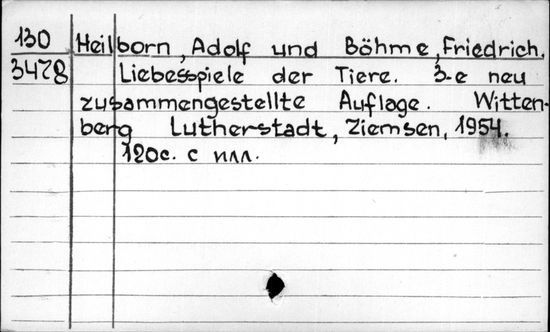 130 Heilborn, Adolf und Böhme, Friedrich.
3478 Liebesspiele der Tiere. 3-e neu
zusammengestellte Auflage. Witten-
berg Lutherstadt, Ziemsen, 1954.
120с. с илл.